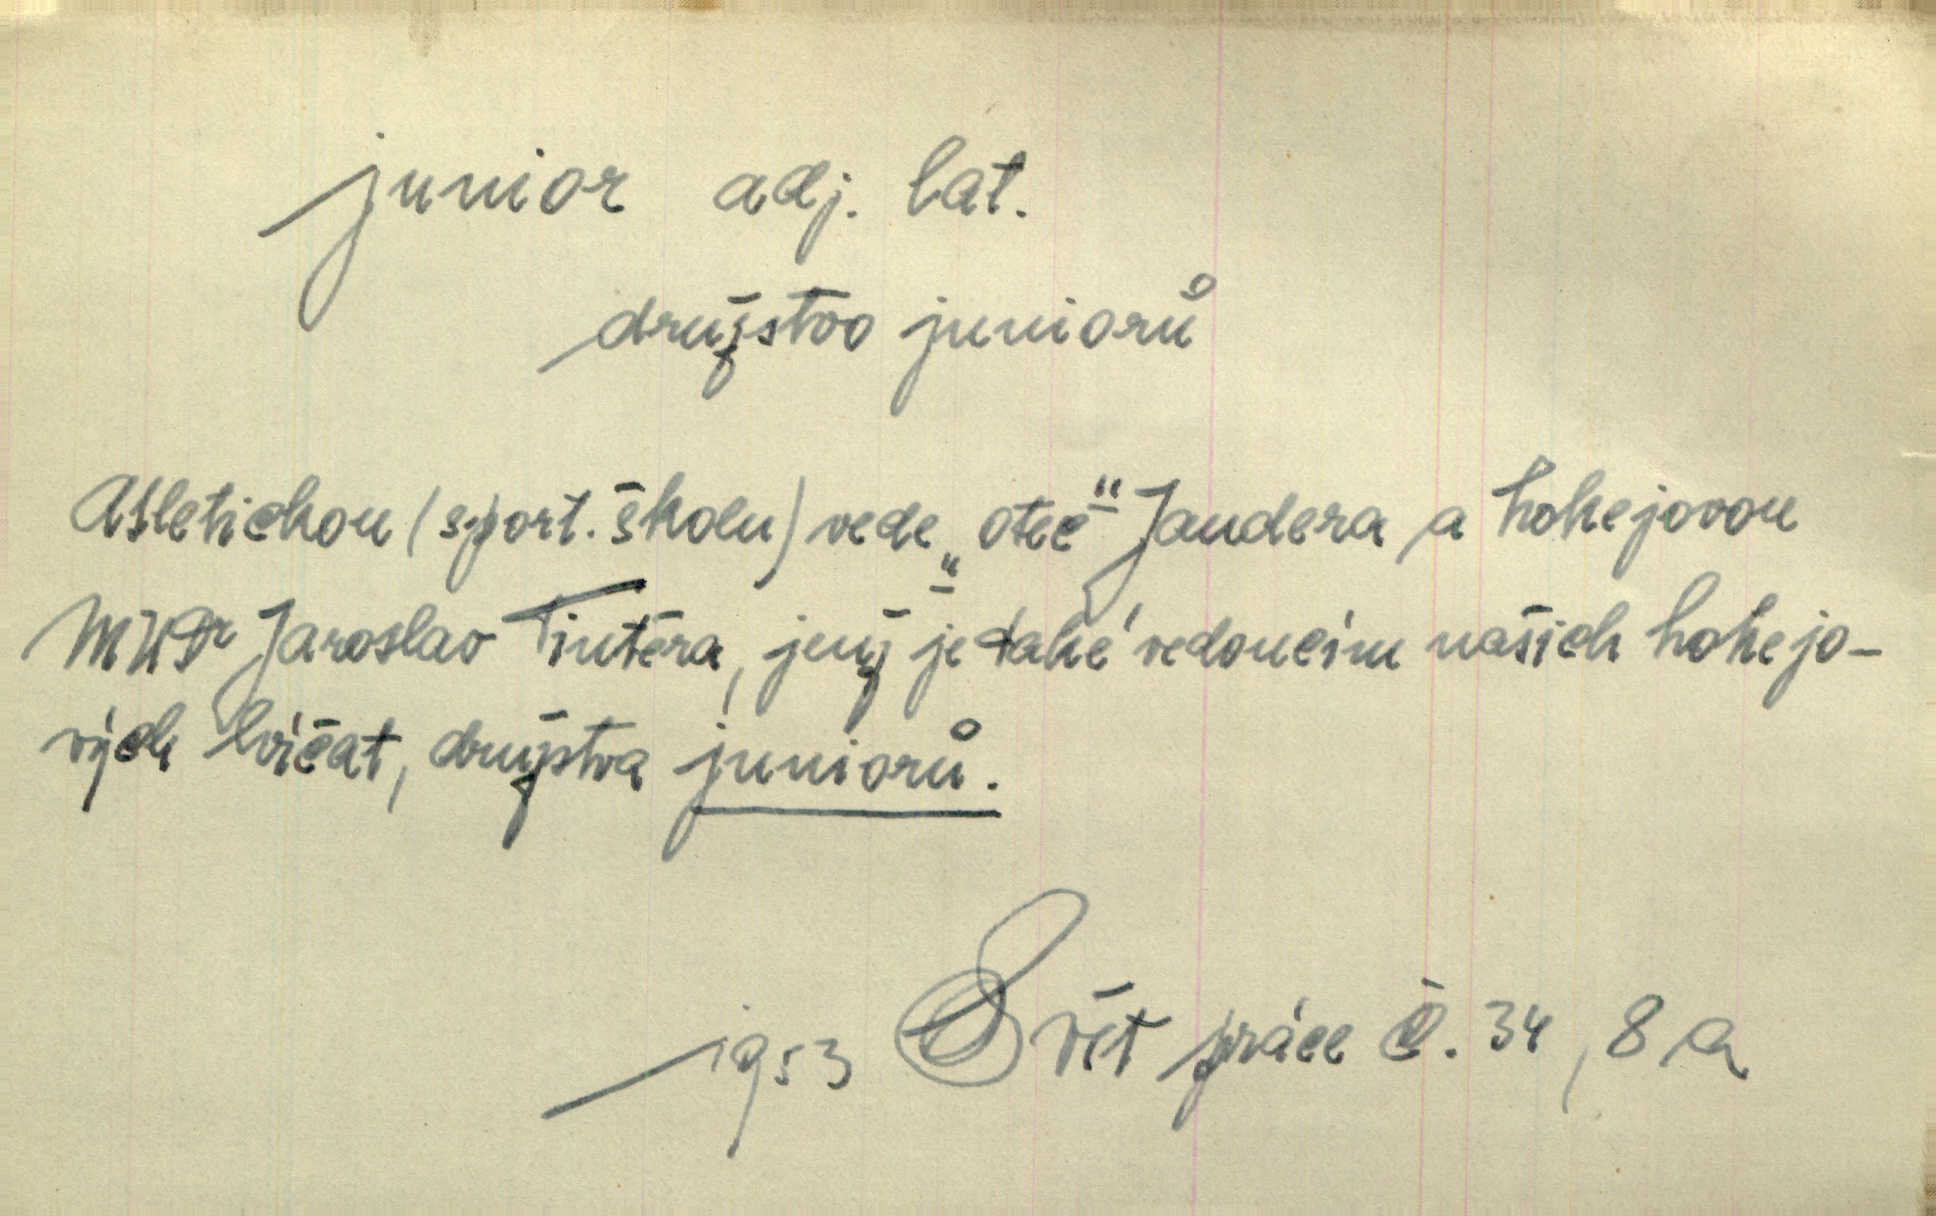 junior adj. lat.
družstvo juniorů
Atletickou (sport. školu) vede „otec“ Jandera a hokejovou
MUDr Jaroslav Tintěra, jenž je také vedoucím našich hokejo-
vých lvíčat, družstva juniorů.
1953 Svět práce č. 34, 8a